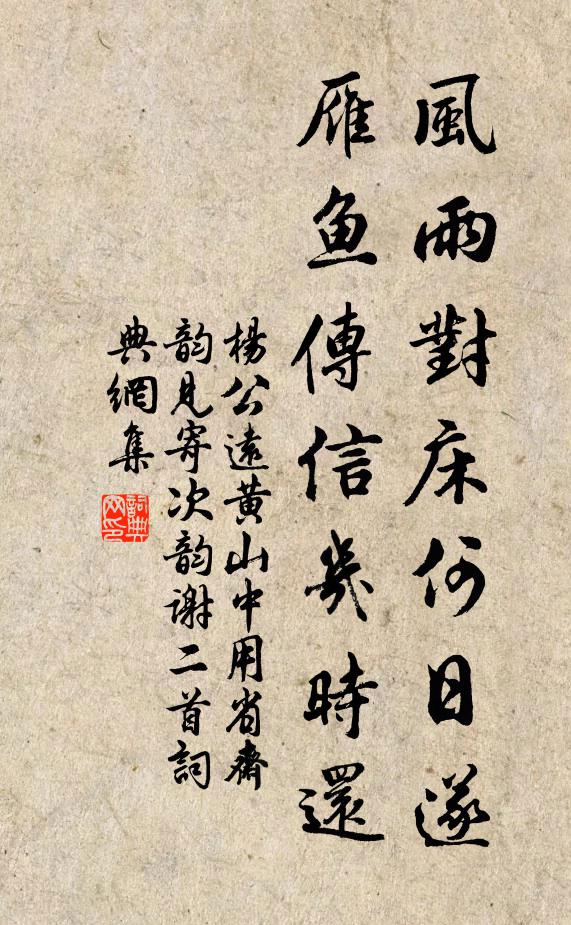 風雨對床何日遂
雁魚傳信幾時還
楊公遠黄山中用省齋
韵見寄次韵謝二首詞
典網集
詞典网印